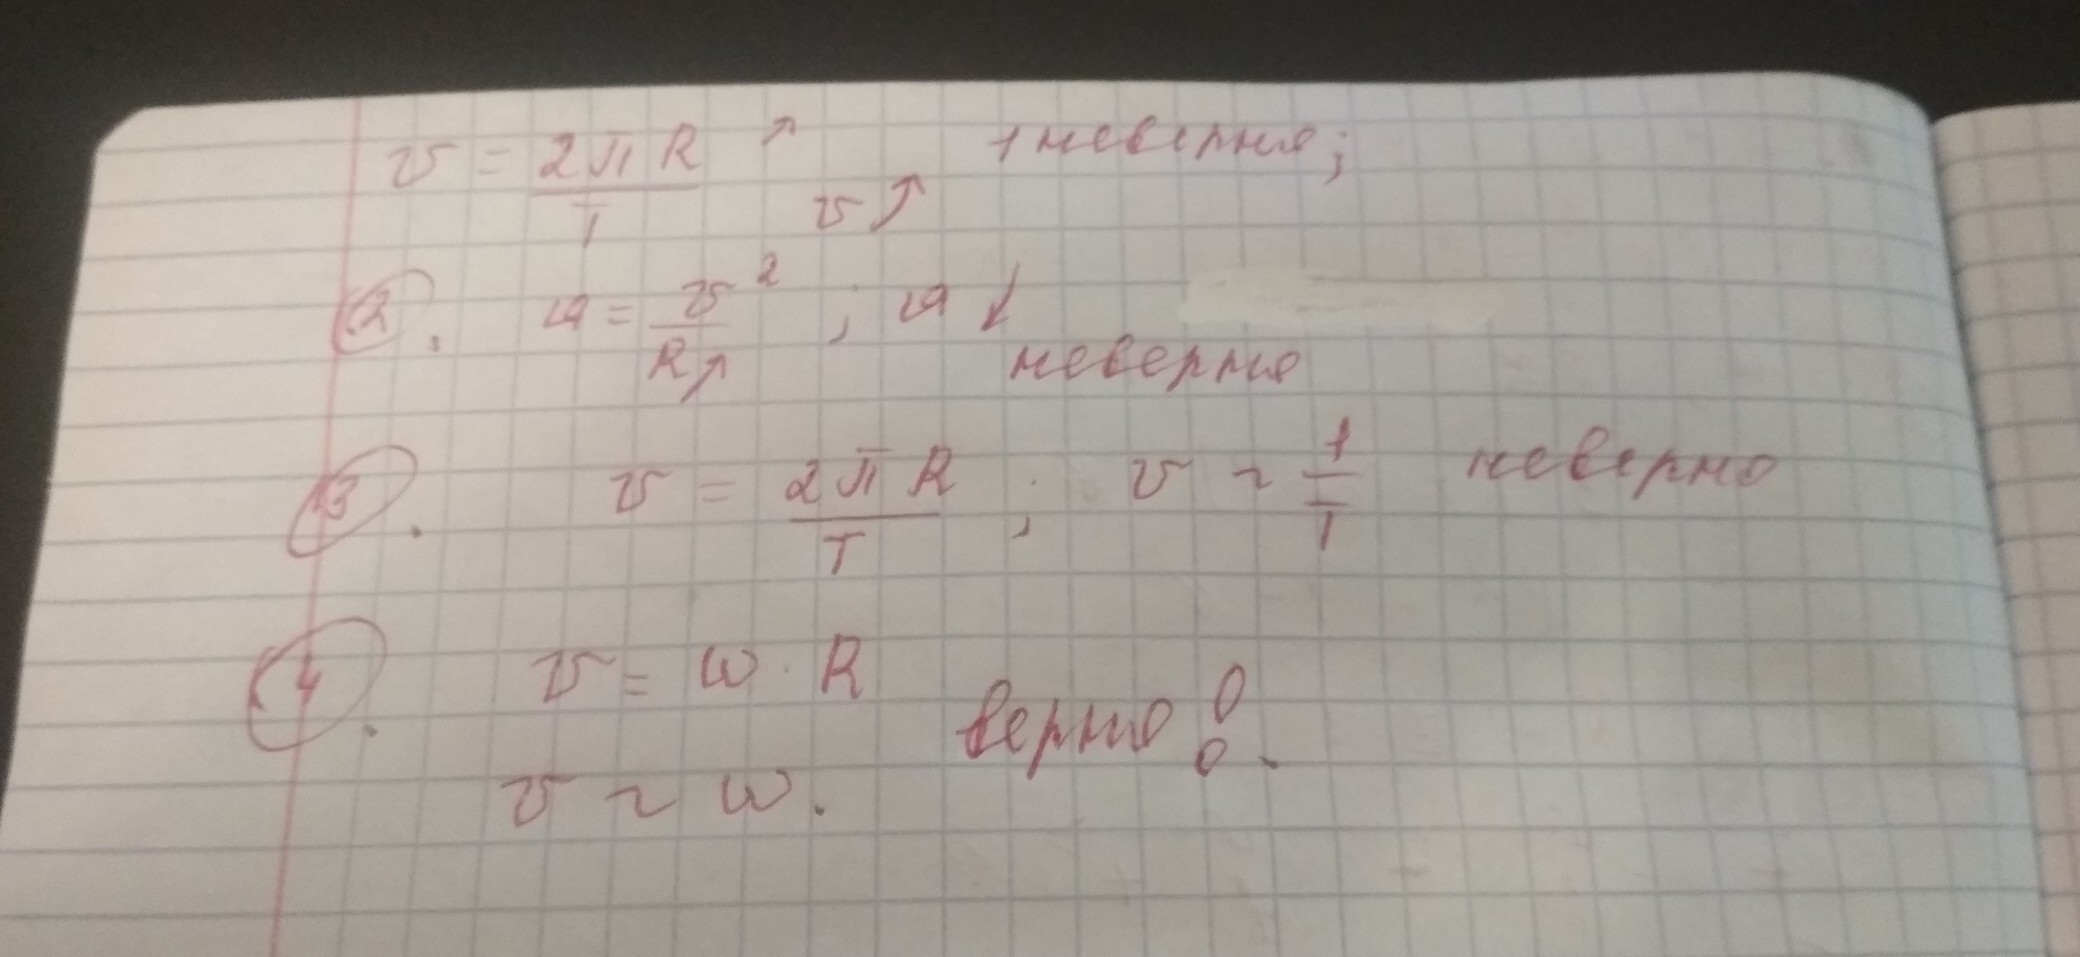 v = 2πR / T ↗ v ↗ 1 неверно;
2. a = v² / R ↗ ; a ↓ неверно
3. v = 2πR / T ; v ~ 1 / T неверно
4. v = ω · R верно!
v ~ ω.